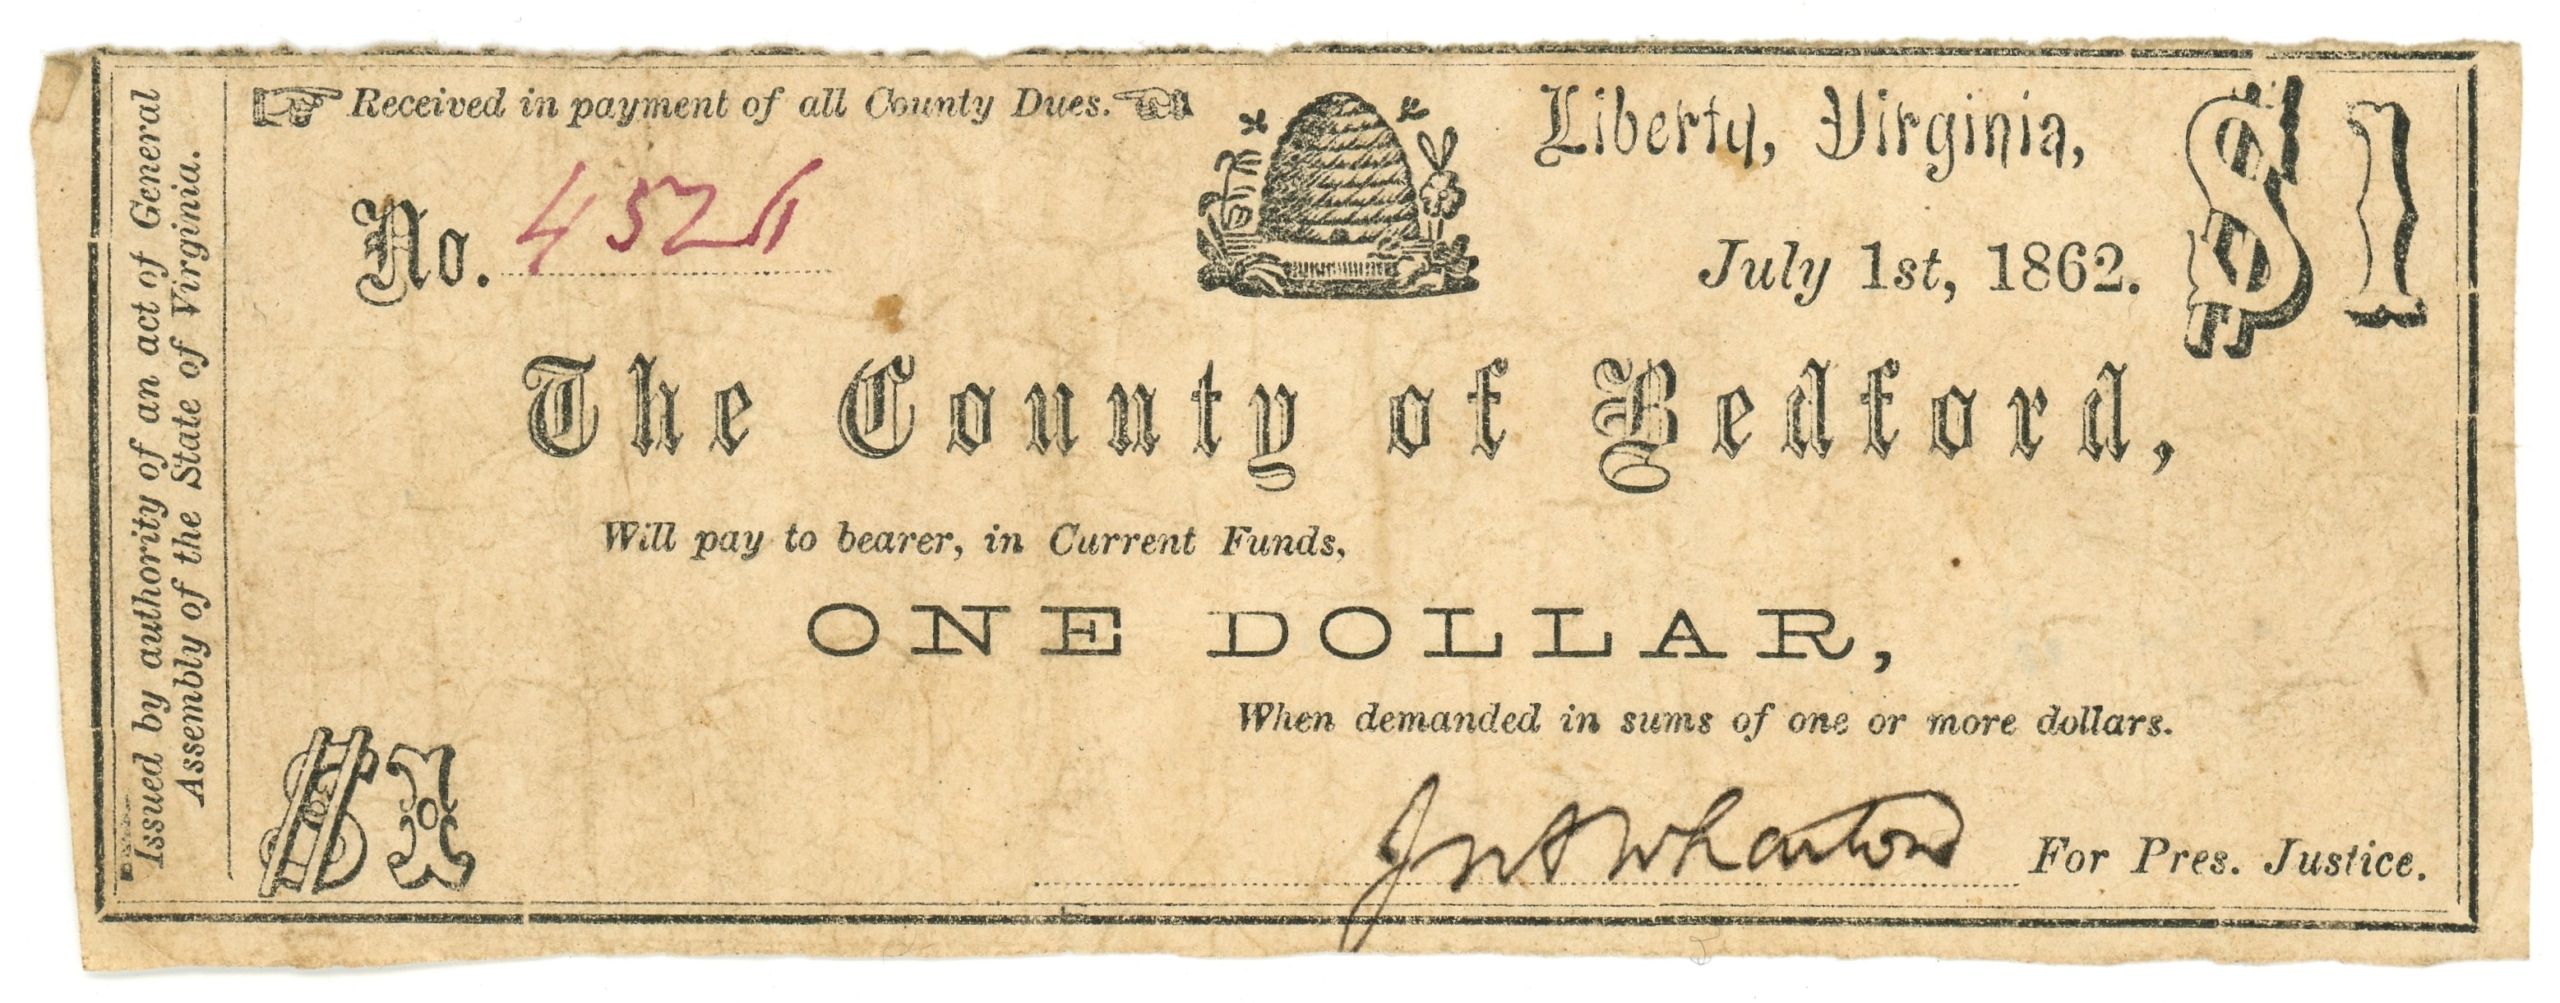 Issued by authority of an act of General
Assembly of the State of Virginia.
Received in payment of all County Dues.
No. 4526
Liberty, Virginia,
$1
July 1st, 1862.
The County of Bedford,
Will pay to bearer, in Current Funds,
ONE DOLLAR,
When demanded in sums of one or more dollars.
$1
Jn A Wharton For Pres. Justice.